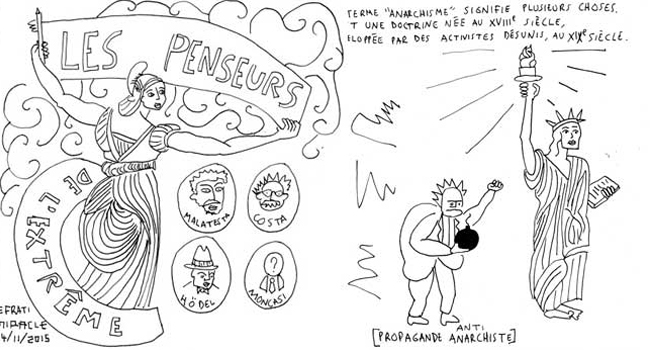 LES PENSEURS
DE L'EXTRÊME
MALATESTA
COSTA
HÖDEL
?
MONCASI
EFRATI
4/11/2015
TERME "ANARCHISME" SIGNIFIE PLUSIEURS CHOSES.
T UNE DOCTRINE NÉE AU XVIIIᵉ SIÈCLE,
ELOPPÉE PAR DES ACTIVISTES DÉSUNIS, AU XIXᵉ SIÈCLE.
ANTI
[PROPAGANDE ANARCHISTE]